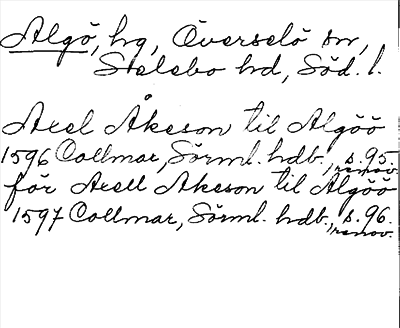 Algö, hg, Överselö sn,
Selebo hd, Söd. l.
Axel Åkeson til Algöö
1596 Collmar, Sörml. hdb., s. 95.
renov.
för Axell Akeson til Algöö
1597 Collmar, Sörml. hdb., s. 96.
renov.